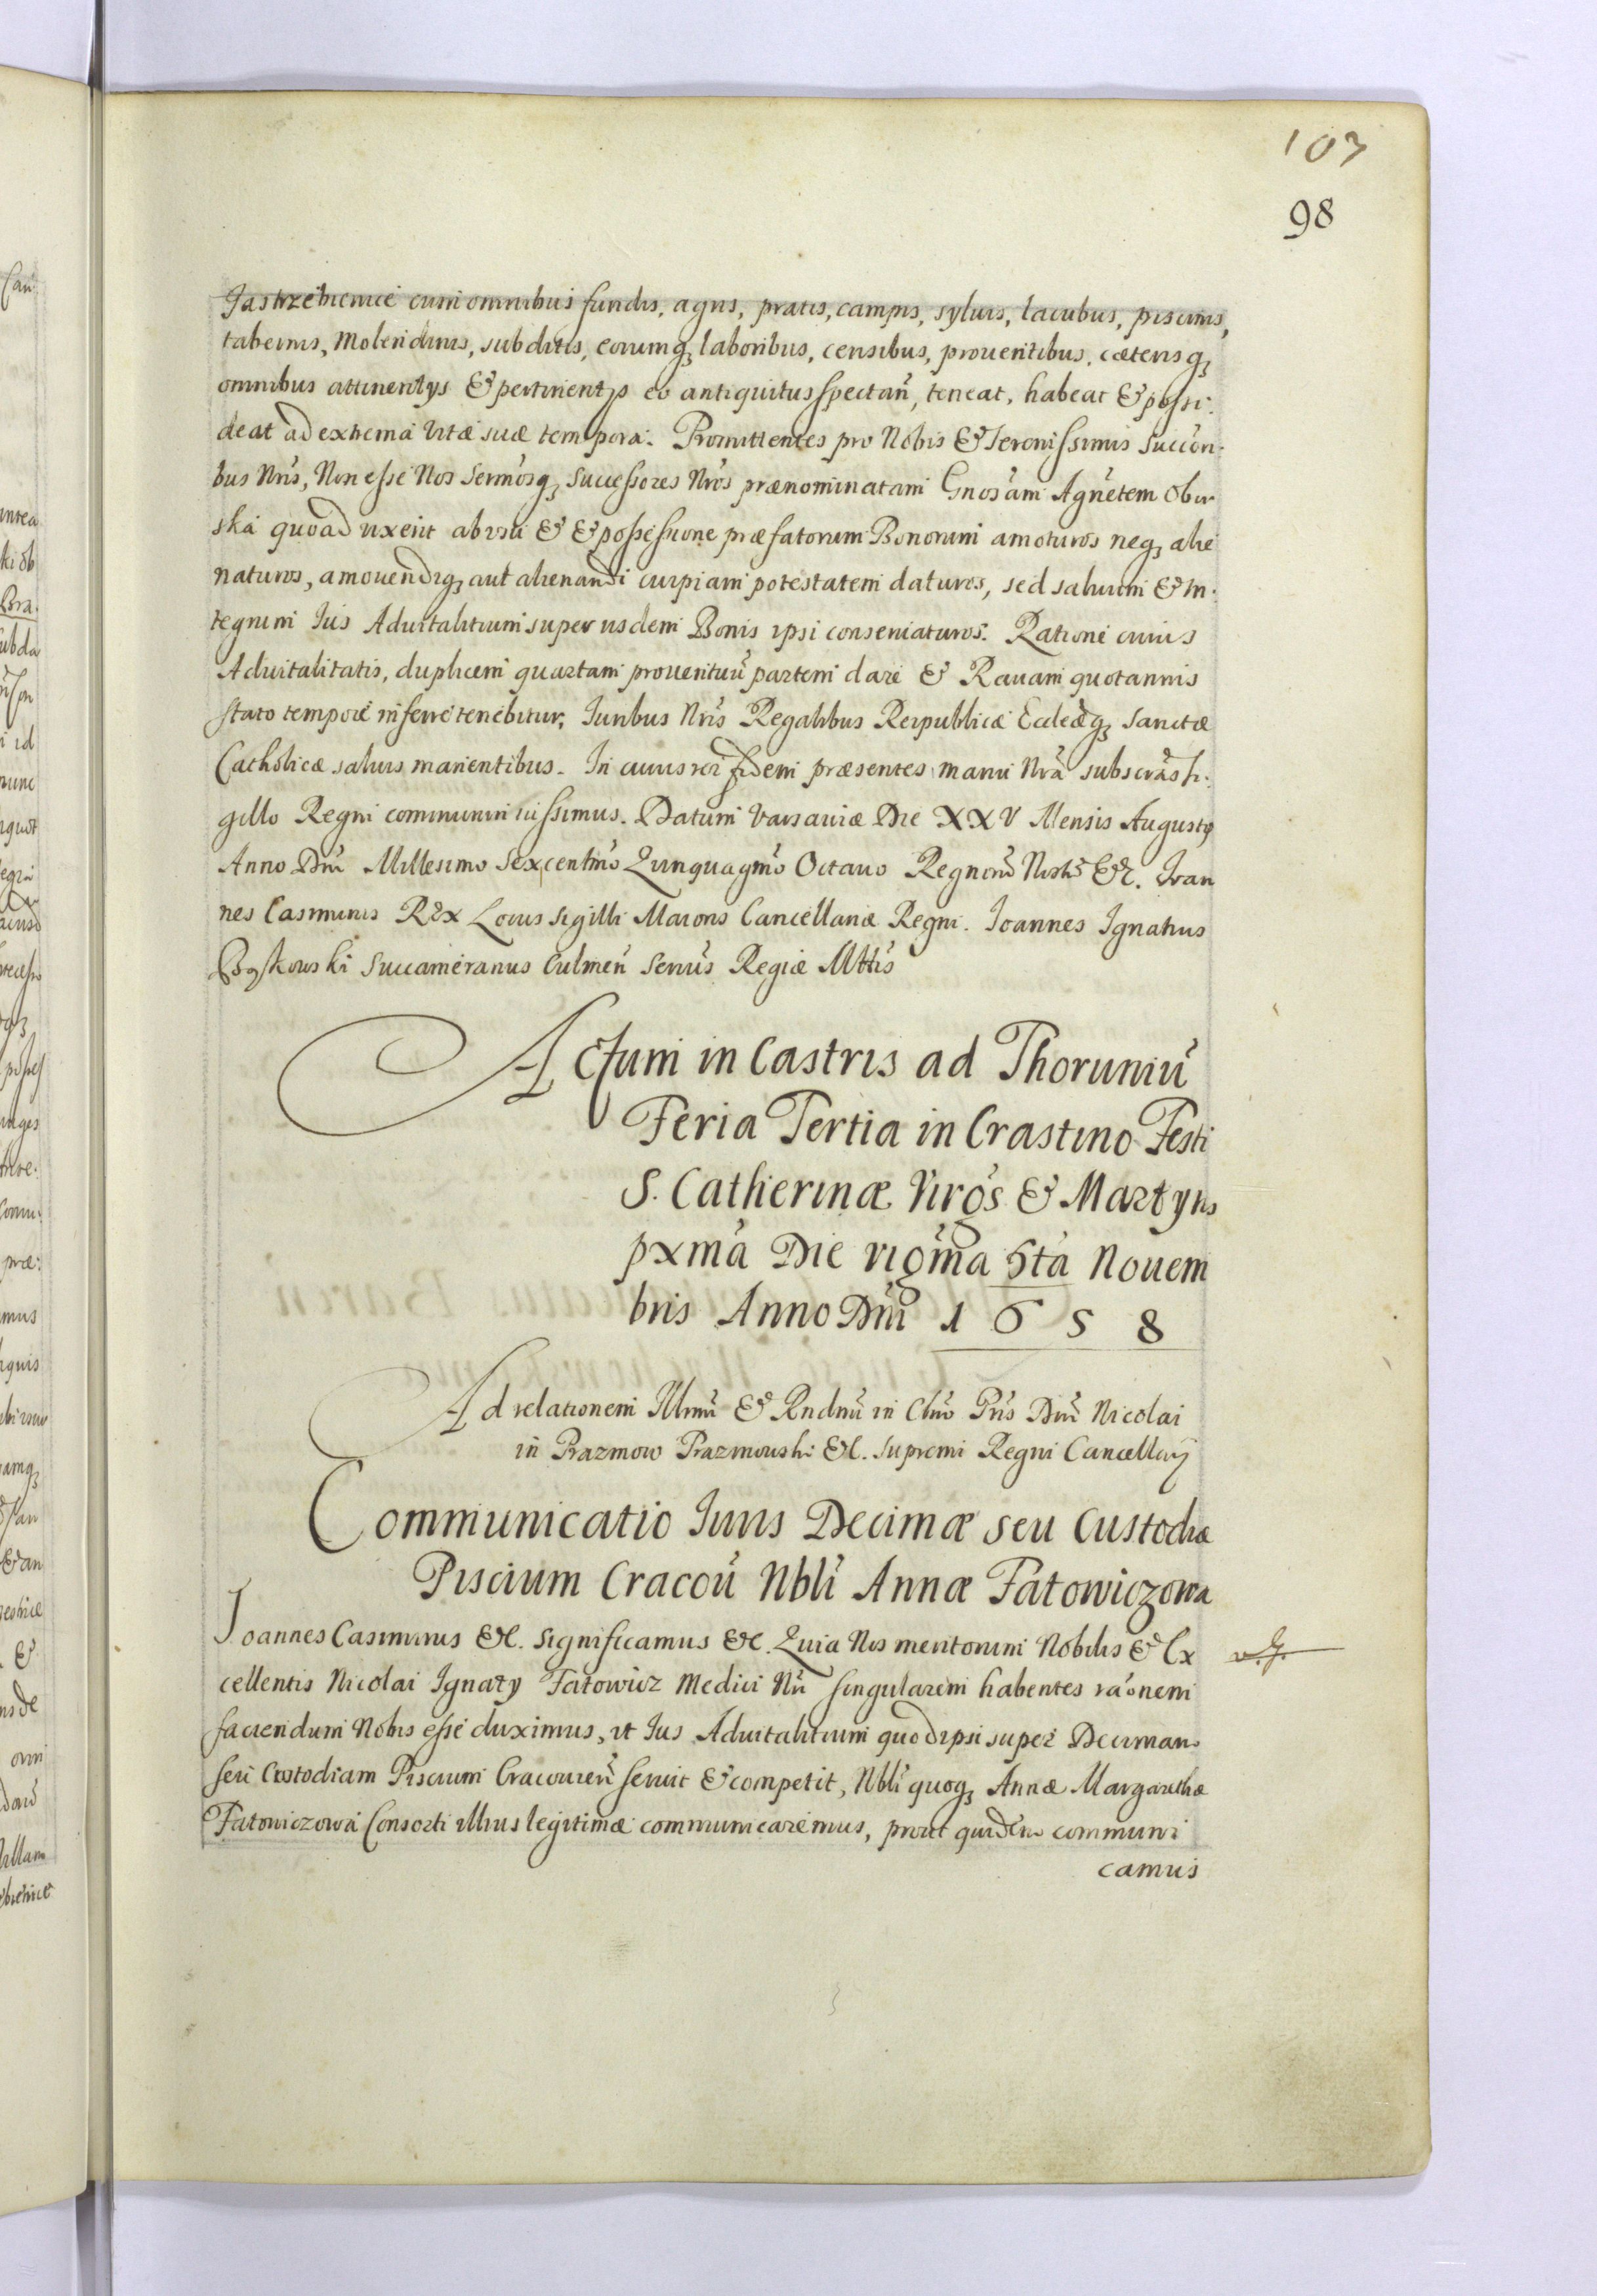 103
98
Jastrzebienice cum omnibus fundis, agris, pratis, campis, syluis, lacubus, piscinis,
tabernis, Molendinis, subditis, eorumq3 laboribus, censibus, prouentibus, cæterisq3
omnibus attinentijs & pertinentijs eo antiquitus spectan̄, teneat, habeat & possi-
deat ad extrema vitæ suæ tempora. Promittentes pro Nobis & Serenissimis Succeri-
bus Nris, Non esse Nos Sermosq3 Successores Nros prænominatam Gnosam Agnetem Obor
ska quoad uxerit ab vsu & & possessione præfatorum Bonorum amoturos neq3 alie
naturos, amouendiq3 aut alienandi cuipiam potestatem daturos, sed saluum & in-
tegrum Ius Aduitalitium super iisdem Bonis ipsi conseruaturos. Ratione cuius
Aduitalitatis, duplicem quartam prouentuū partem dare & Rauam quotannis
stato tempore inferre tenebitur, Iuribus Nris Regalibus Reipublicæ Eccleæq3 Sanctæ
Catholicæ saluis manentibus. In cuius rei fidem præsentes manu Nra subscras si-
gillo Regni communiri iussimus. Datum Varsauiæ Die XXV Mensis Augusti
Anno Dni Millesimo Sexcentmo Quinquagmo Octauo Regnorū Nrorū &c. Ioan
nes Casimirus Rex Locus sigilli Maioris Cancellariæ Regni. Ioannes Ignatius
Bąkowski Succameranus Culmen̄ Secrius Regiæ Mttis
Actum in Castris ad Thoruniū
Feria Tertia in Crastino Festi
S. Catherinæ Virgs & Martyris
pxma Die vigma 6ta Nouem
bris Anno Dni 1658
Ad relationem Illmi & Rndmi in Chro Pris Dni Nicolai
in Prazmow Prazmowski &c. Supremi Regni Cancellarij
Communicatio Iuris Decimæ seu Custodiæ
Piscium Cracou̅ Nbli Annæ Fatowiczowa
Joannes Casimirus &c. Significamus &c. Quia Nos meritorum Nobilis & Ex
cellentis Nicolai Ignaty Fatowicz Medici Nri singularem habentes raonem
faciendum Nobis esse duximus, vt Ius Aduitalitium quod ipsi super Decimam
seu Custodiam Piscium Cracouien̄ seruit & competit, Nbli quoq3 Annæ Margarithæ
Fatowiczowa Consorti illius legitimæ communicaremus, prout quidem communi
camus